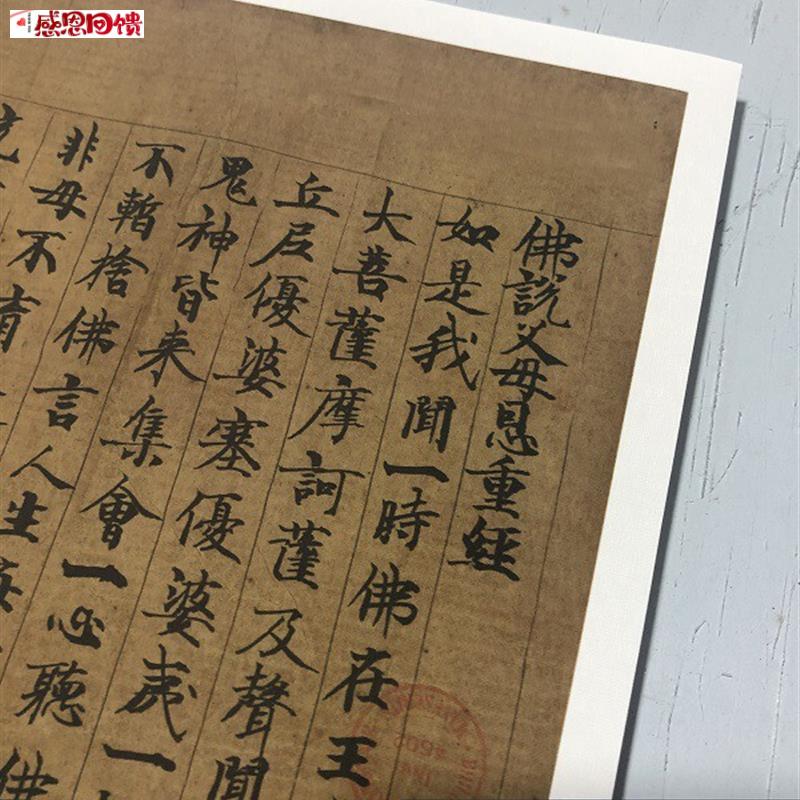 感恩回馈
佛說父母恩重經
如是我聞一時佛在王
大菩薩摩訶薩及聲聞
丘尼優婆塞優婆夷一
鬼神皆来集會一心聽佛
不暫捨佛言人生
非母不育